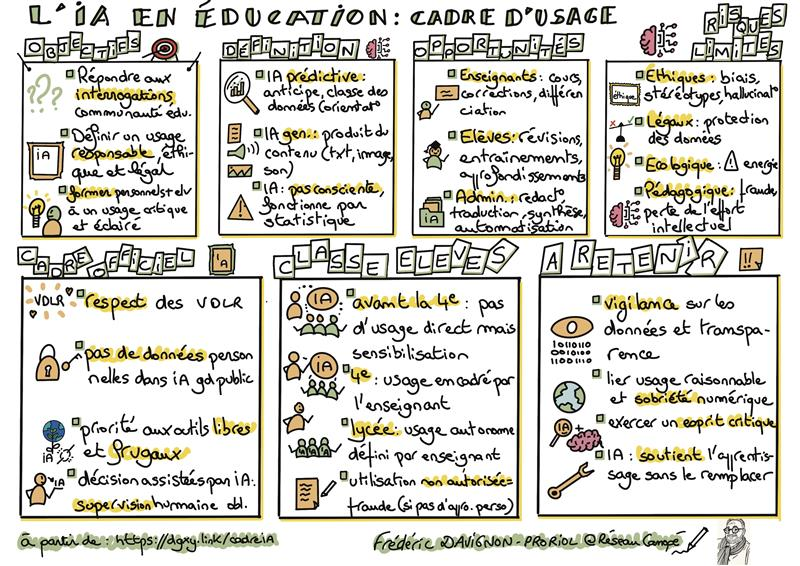 L'IA EN ÉDUCATION : CADRE D'USAGE
OBJECTIFS
Répondre aux
interrogations
communauté édu.
Définir un usage
responsable, éthi-
que et légal
former personnels + elv
à un usage critique
et éclairé
???
iA
DÉFINITION
IA prédictive :
anticipe, classe des
données (orientat°
IA gen. : produit du
contenu (txt, image,
son)
IA : pas consciente,
fonctionne par
statistique
OPPORTUNITÉS
Enseignants : cours,
corrections, différen
ciation
Elèves : révisions,
entraînements,
approfondissements
Admin. : redact°
traduction, synthèse,
automatisation
iA
RISQUES
LIMITES
Ethiques : biais,
stéréotypes, hallucinat°
éthique
Légaux : protection
des données
Ecologique : energie
Pédagogique : fraude,
perte de l'effort
intellectuel
CADRE OFFICIEL
IA
VDLR
respect des VDLR
pas de données person
nelles dans iA gd public
priorité aux outils libres
et frugaux
IA
décision assistées par iA :
supervision humaine obl.
IA
CLASSE ELEVES
IA
avant la 4e : pas
d'usage direct mais
sensibilisation
IA
4e : usage encadré par
l'enseignant
lycée : usage autonome
défini par enseignant
utilisation non autorisée =
fraude (si pas d'appro. perso)
A RETENIR
!!
vigilance sur les
données et transpa-
rence
10110110
00101100
lier usage raisonnable
et sobriété numérique
exercer un esprit critique
IA +
IA : soutient l'apprentis-
sage sans le remplacer
à partir de : https://dgxy.link/cadreiA
Frédéric DAVIGNON-PRORIOL @Réseau Canopé